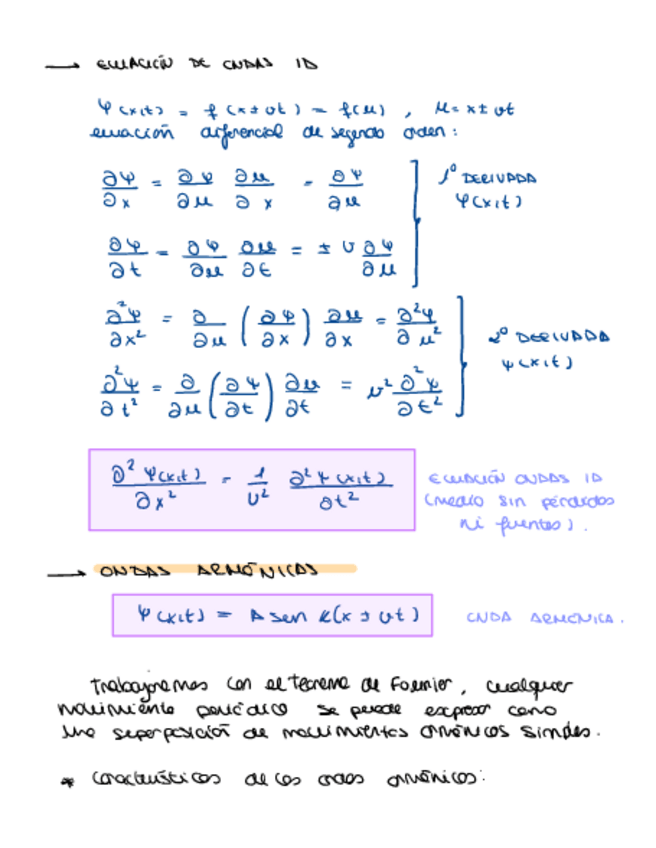 → ECUACIÓN DE ONDAS 1D
ψ(x,t) = f(x±vt) = f(μ) , μ = x±vt
ecuación diferencial de segundo orden:
∂ψ/∂x = ∂ψ/∂μ ∂μ/∂x = ∂ψ/∂μ
∂ψ/∂t = ∂ψ/∂μ ∂μ/∂t = ± v ∂ψ/∂μ
1º DERIVADA
ψ(x,t)
∂²ψ/∂x² = ∂/∂μ (∂ψ/∂x) ∂μ/∂x = ∂²ψ/∂μ²
∂²ψ/∂t² = ∂/∂μ (∂ψ/∂t) ∂μ/∂t = v² ∂²ψ/∂t²
2º DERIVADA
ψ(x,t)
∂²ψ(x,t)/∂x² = 1/v² ∂²ψ(x,t)/∂t²
ECUACIÓN ONDAS 1D
(medio sin pérdidas
ni fuentes).
→ ONDAS ARMÓNICAS
ψ(x,t) = A sen k(x ± vt)
ONDA ARMÓNICA.
Trabajaremos con el teorema de Fourier, cualquier
movimiento periódico se puede expresar como
una superposición de movimientos armónicos simples.
* Características de las ondas armónicas: